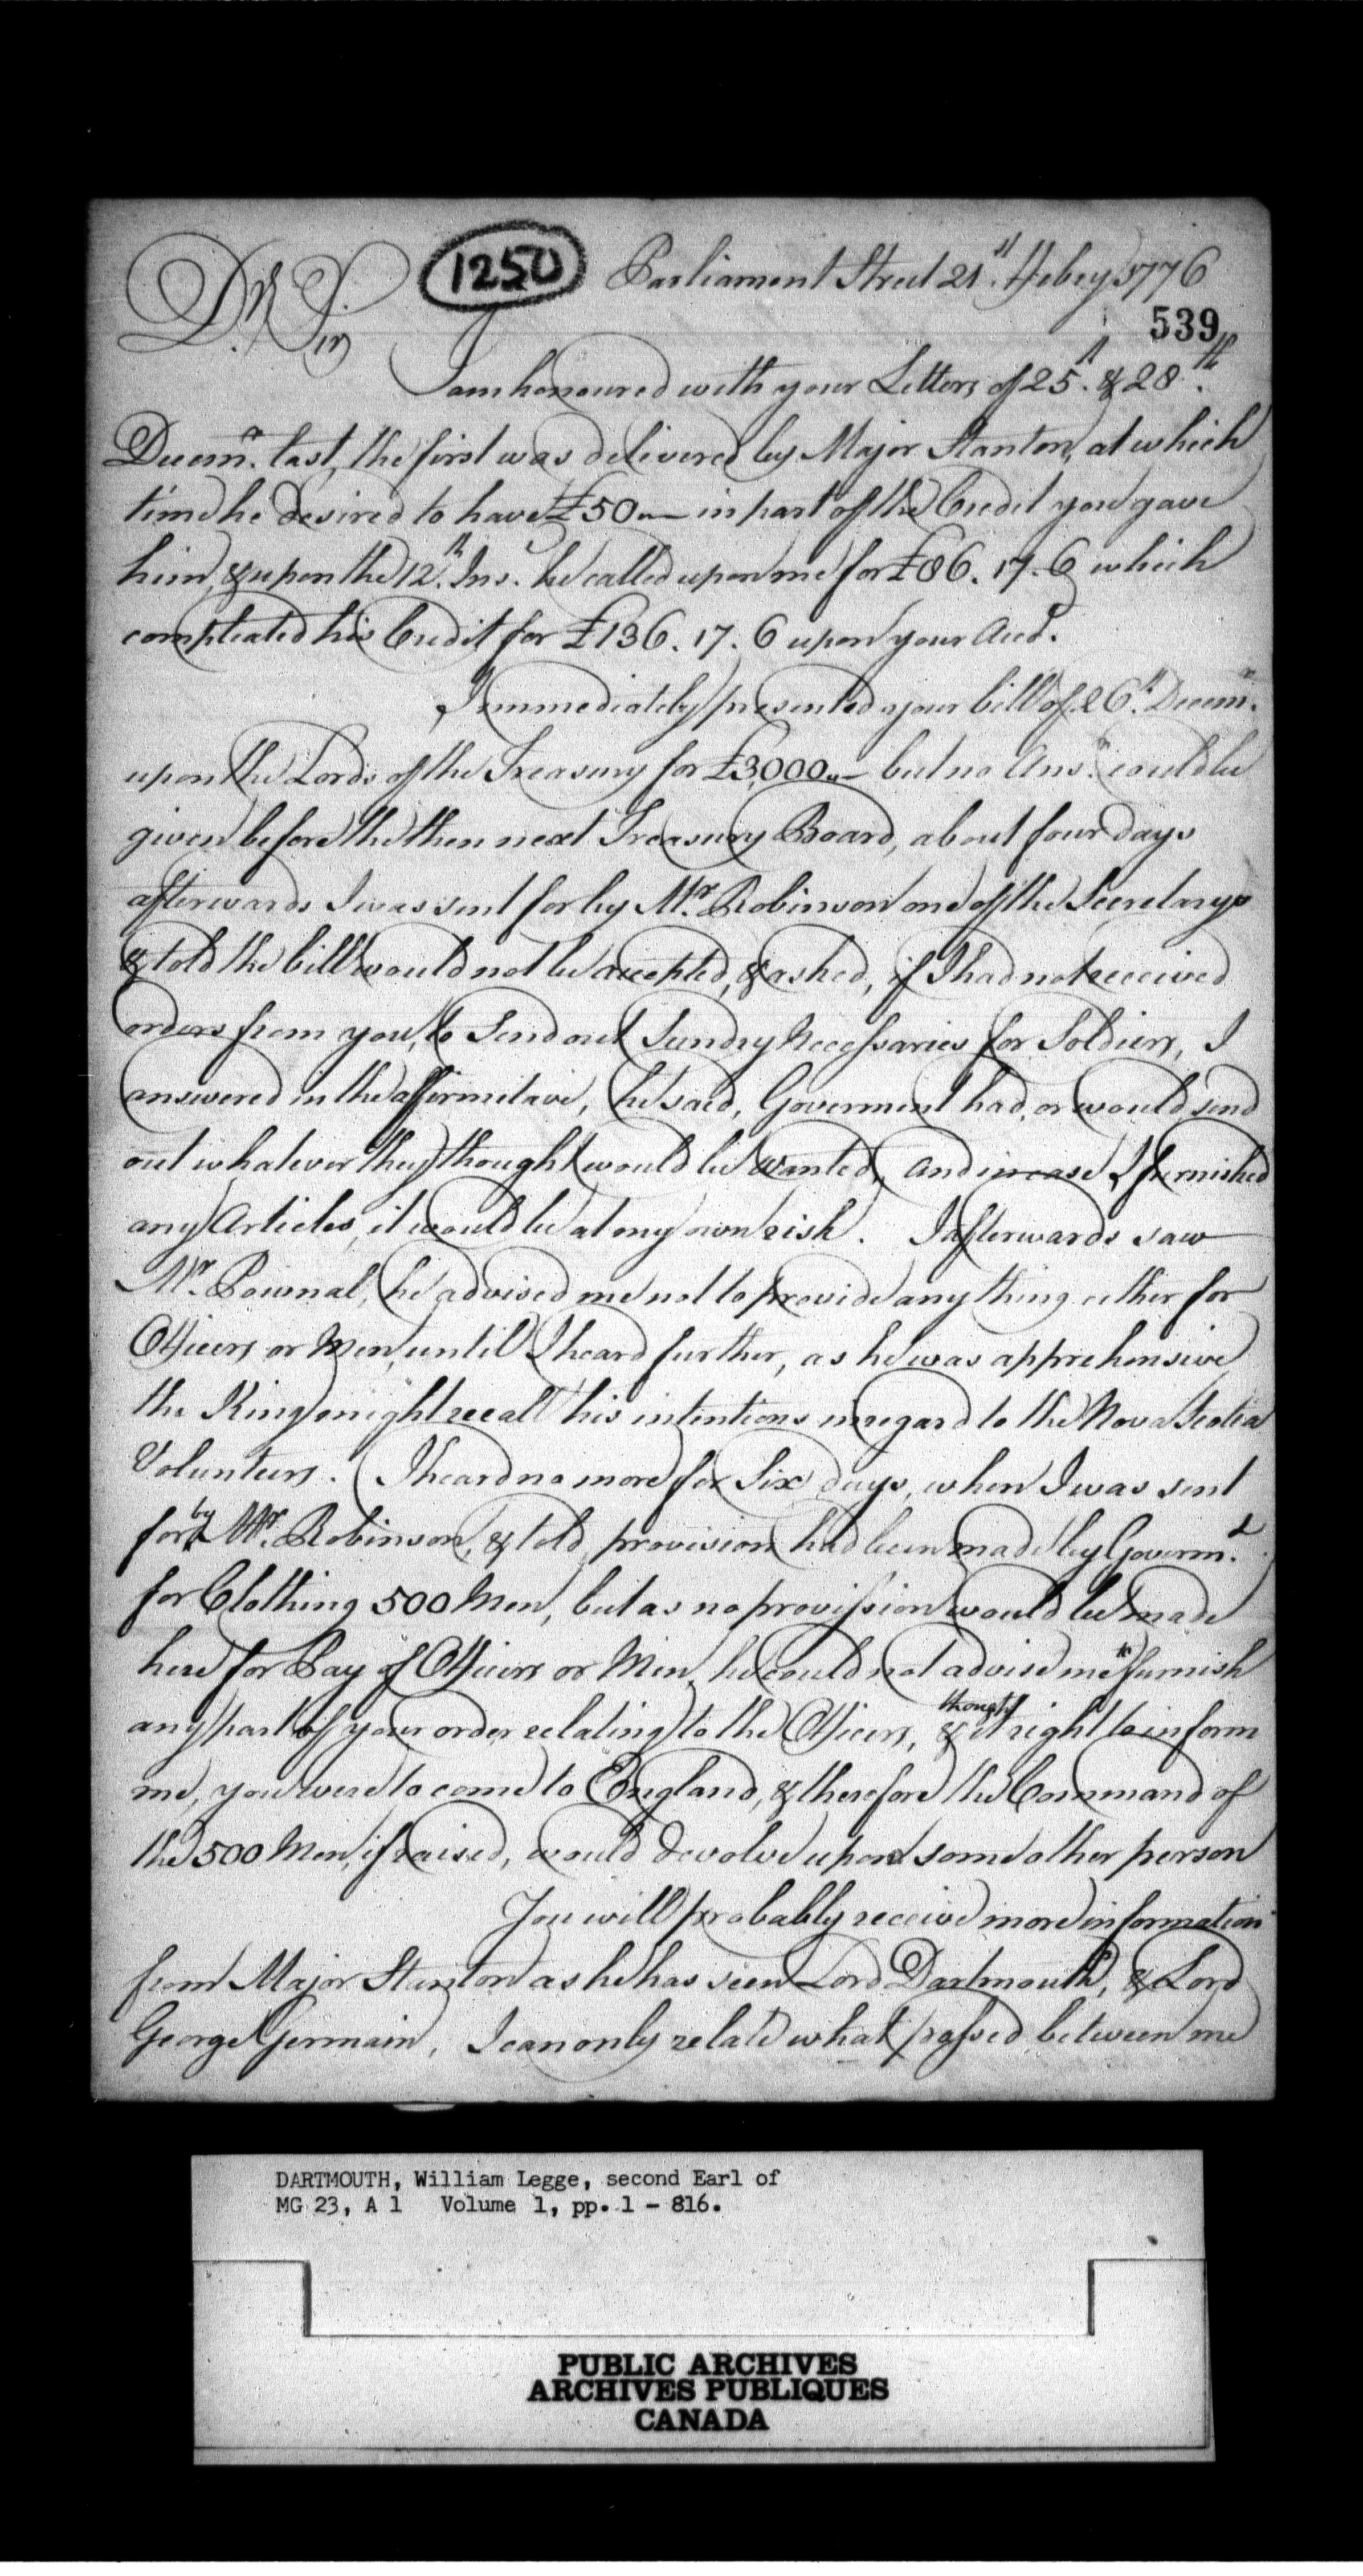 1250
Parliament Street 21st. Febry 1776
539
Dr. Sir
I am honoured with your Letters of 25th. & 28th.
Decemr. last, the first was delivered by Major Stanton, at which
time he desired to have £50 „— in part of the Credit you gave
him, & upon the 12th. Inst. he called upon me for £86. 17. 6 which
compleated his Credit for £136. 17. 6 upon your Acct.
I immediately presented your bill of 26th. Decemr.
upon the Lords of the Treasury for £3,000 „— but no Ansr. could be
given before the then next Treasury Board, about four days
afterwards I was sent for by Mr. Robinson one of the Secretarys
& told the bill would not be accepted, & asked, if I had not received
orders from you, to Send out Sundry Necessaries for Soldiers, I
answered in the affirmitave, he said, Goverment had, or would send
out whatever they thought would be wanted, and in case I furnished
any Articles, it would be at my own risk. I afterwards saw
Mr. Pownal, he advised me not to provide any thing either for
Officers or Men, until I heard further, as he was apprehensive
the King might recall his intentions in regard to the Nova Scotia
Volunteers. I heard no more for Six days, when I was sent
for by Mr. Robinson, & told, provision had been made by Governmt.
for Clothing 500 Men, but as no provission would be made
here for Pay of Officers or Men, he could not advise me to furnish
any part of your order relating to the Officers, & thought it right to inform
me, you were to come to England, & therefore the Command of
the 500 Men, if raised, would devolve upon some other person
You will probably receive more information
from Major Stanton as he has seen Lord Dartmouth, & Lord
George Germain, I can only relate what passed between me
DARTMOUTH, William Legge, second Earl of
MG 23, A 1 Volume 1, pp. 1 - 816.
PUBLIC ARCHIVES
ARCHIVES PUBLIQUES
CANADA